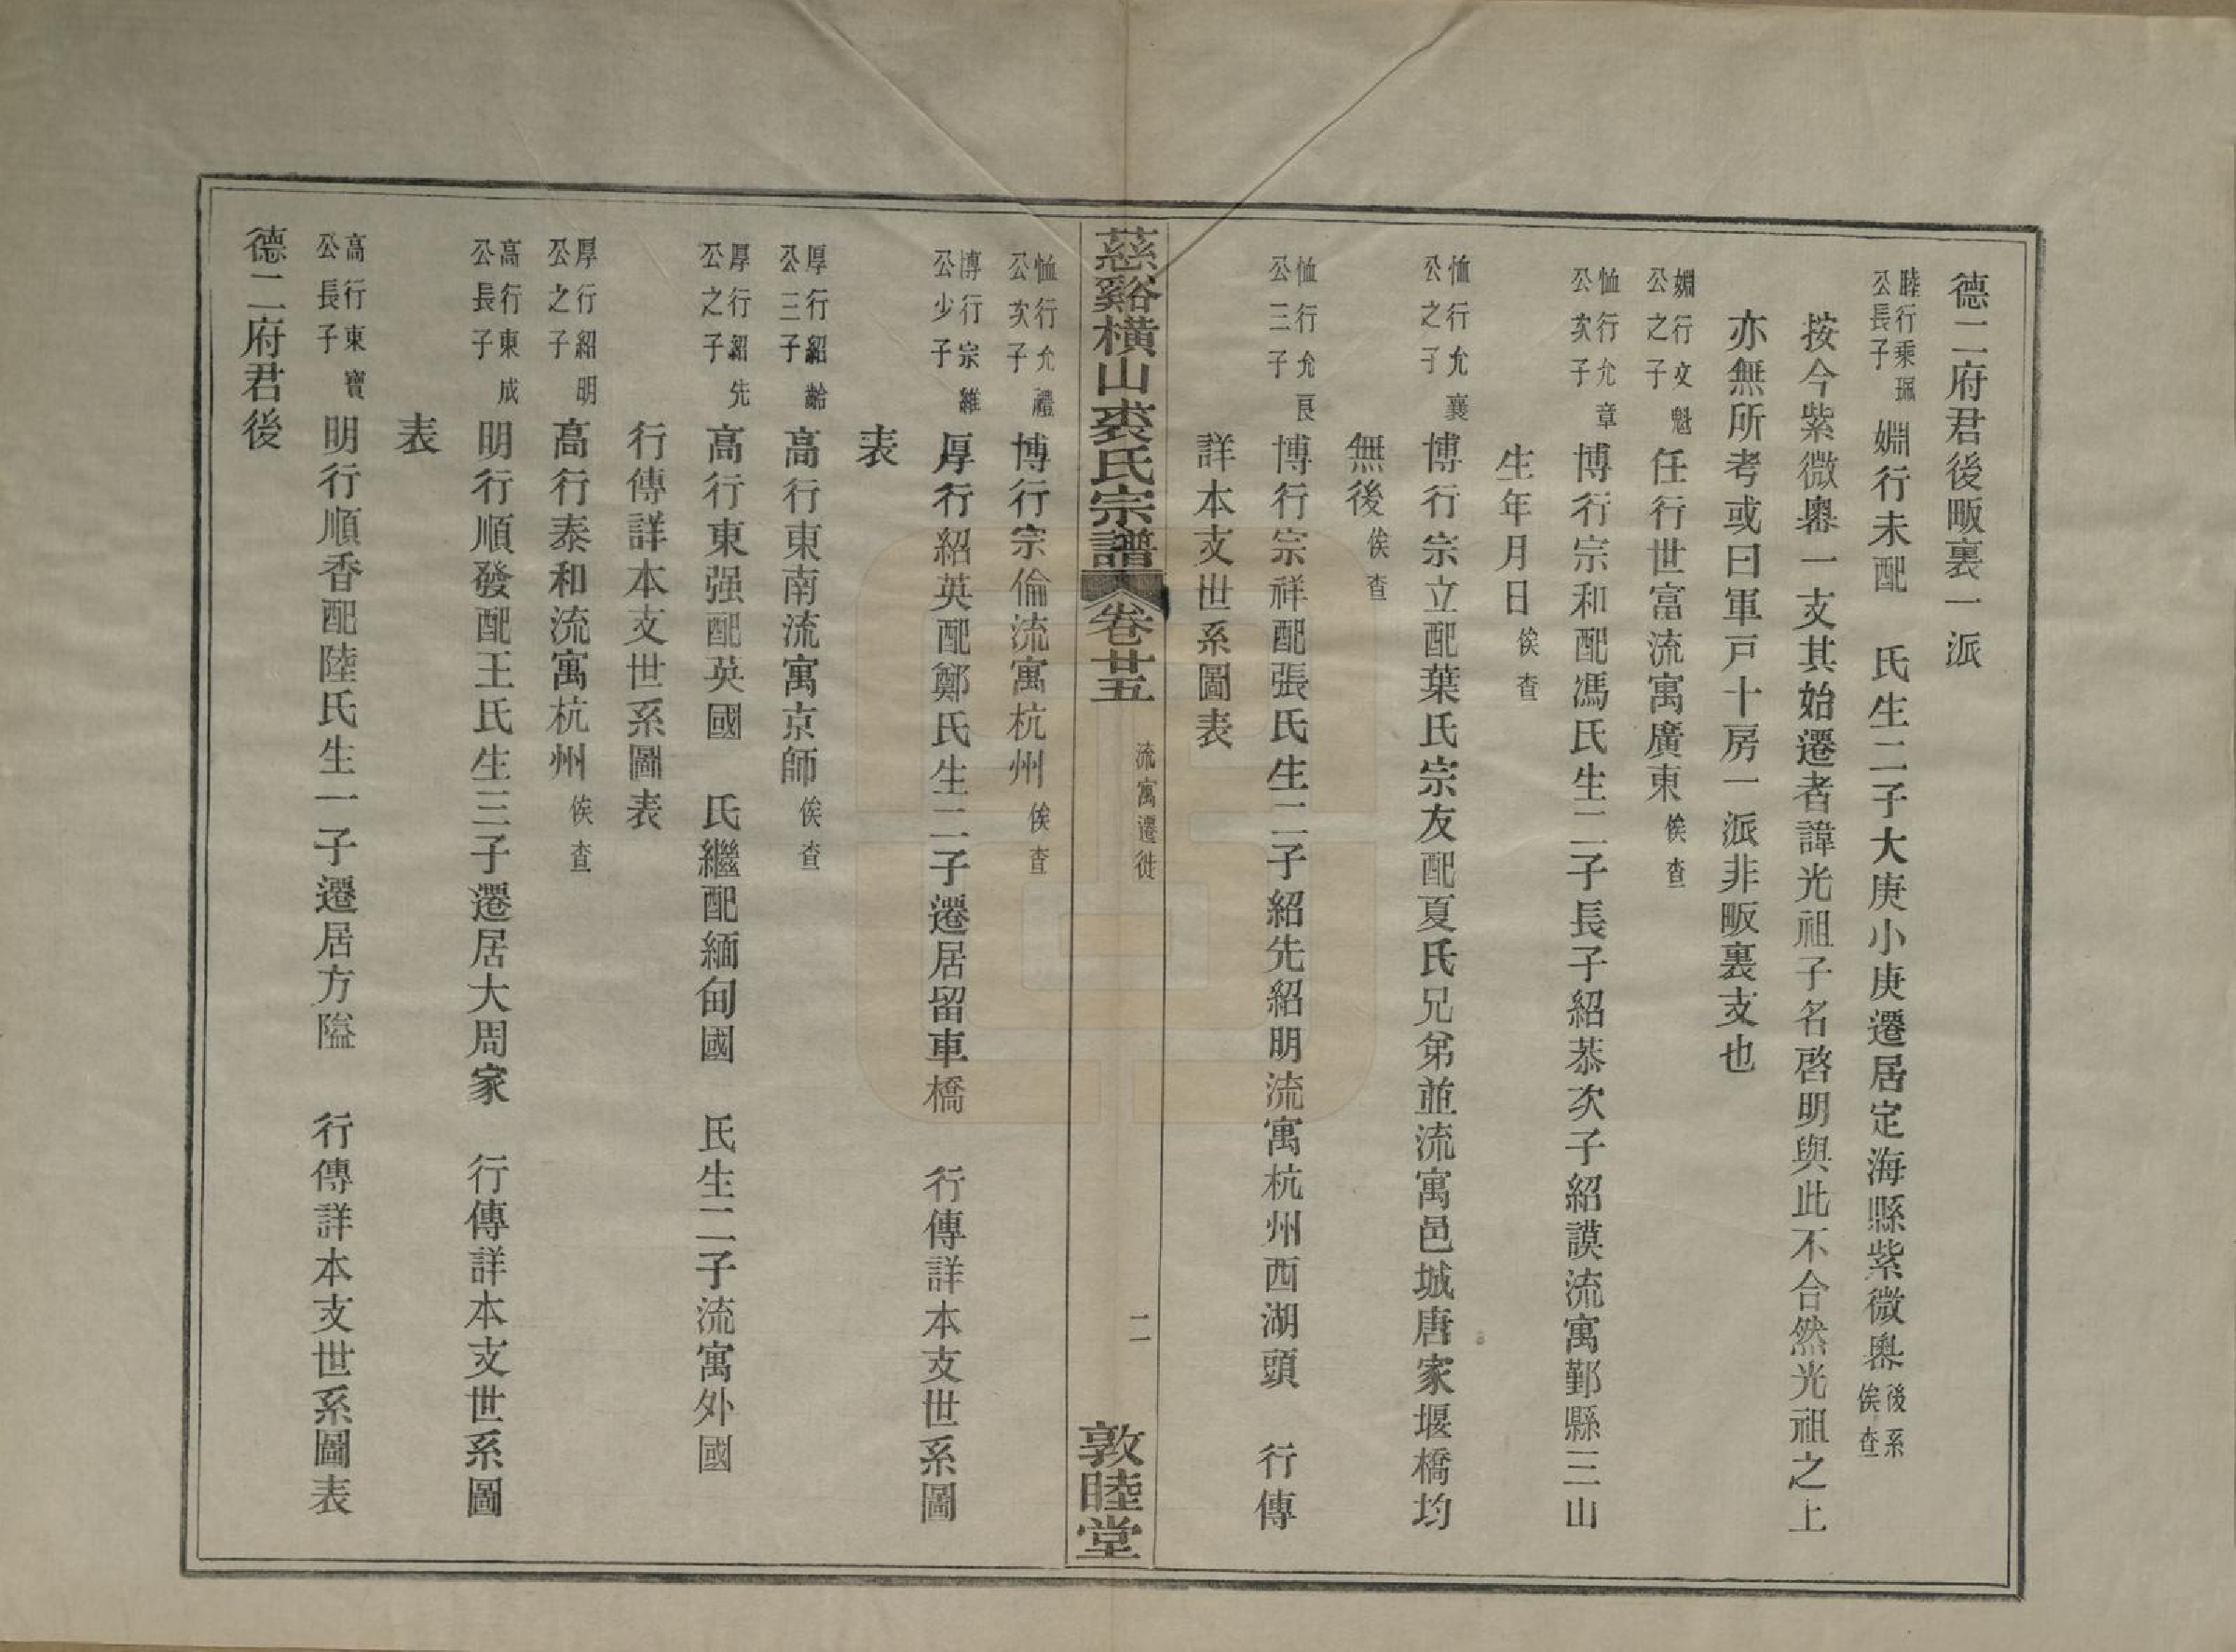 德二府君後畈裏一派
睦行乘珮公長子 婣行未配　氏生二子大庚小庚遷居定海縣紫微嶴 後系俟查
按今紫微嶴一支其始遷者諱光祖子名啓明與此不合然光祖之上
亦無所考或曰軍戸十房一派非畈裏支也
婣行文魁公之子 任行世富流寓廣東 俟查
恤行允章公次子 博行宗和配馮氏生二子長子紹恭次子紹謨流寓鄞縣三山
生年月日 俟查
恤行允襄公之子 博行宗立配葉氏宗友配夏氏兄弟並流寓邑城唐家堰橋均
無後 俟查
恤行允良公三子 博行宗祥配張氏生二子紹先紹明流寓杭州西湖頭　行傳
詳本支世系圖表
慈谿橫山裘氏宗譜 卷廿五 流寓遷徙 二 敦睦堂
恤行允禮公次子 博行宗倫流寓杭州 俟查
博行宗維公少子 厚行紹英配鄭氏生二子遷居留車橋　行傳詳本支世系圖
表
厚行紹齡公三子 高行東南流寓京師 俟查
厚行紹先公之子 高行東强配英國　氏繼配緬甸國　氏生二子流寓外國
行傳詳本支世系圖表
厚行紹明公之子 高行泰和流寓杭州 俟查
高行東成公長子 明行順發配王氏生三子遷居大周家　行傳詳本支世系圖
表
高行東寶公長子 明行順香配陸氏生一子遷居方隘　行傳詳本支世系圖表
德二府君後